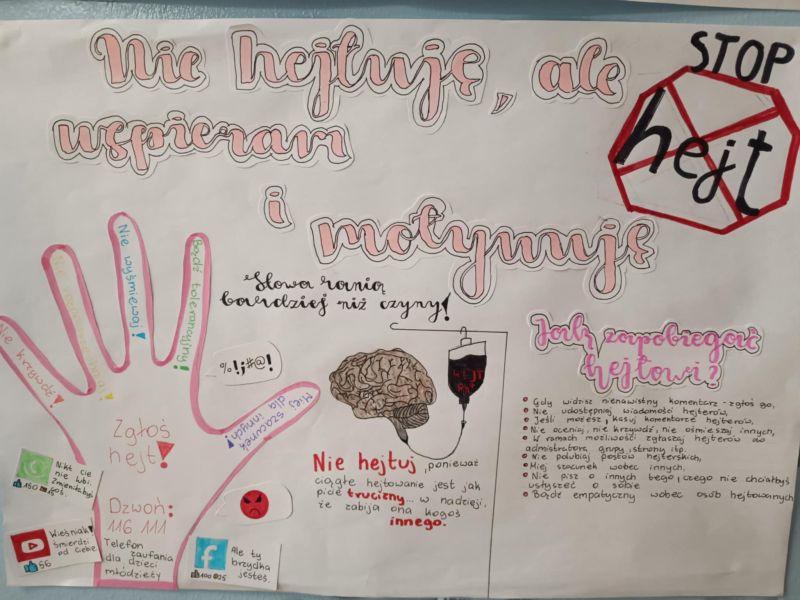 Nie hejtuję, ale
wspieram
i motywuję
STOP
hejt
Słowa ranią
bardziej niż czyny!
Nie krzywdź!
Nie wyśmiewaj!
Bądź tolerancyjny!
Miej szacunek
dla innych!
%!¡#@!
Zgłoś
hejt!
Dzwoń:
116 111
Telefon
zaufania
dla dzieci
młodzieży
Nikt cię
nie lubi.
Wieśniak!
Śmierdzi
od Ciebie
56
Ale ty
brzydka
jesteś.
100
HEJT
Nie hejtuj, ponieważ
ciągłe hejtowanie jest jak
picie trucizny... w nadziei,
że zabija ona kogoś
innego.
Jak zapobiegać
hejtowi?
Gdy widzisz nienawistny komentarz - zgłoś go,
Nie udostępniaj wiadomości hejterów,
Jeśli możesz, kasuj komentarze hejterów,
Nie oceniaj, nie krzywdź, nie ośmieszaj innych,
W ramach możliwości zgłaszaj hejterów do
admistratora, grupy, strony itp.
Nie polubiaj postów hejterskich,
Miej szacunek wobec innych,
Nie pisz o innych tego, czego nie chciałbyś
usłyszeć o sobie
Bądź empatyczny wobec osób hejtowanych